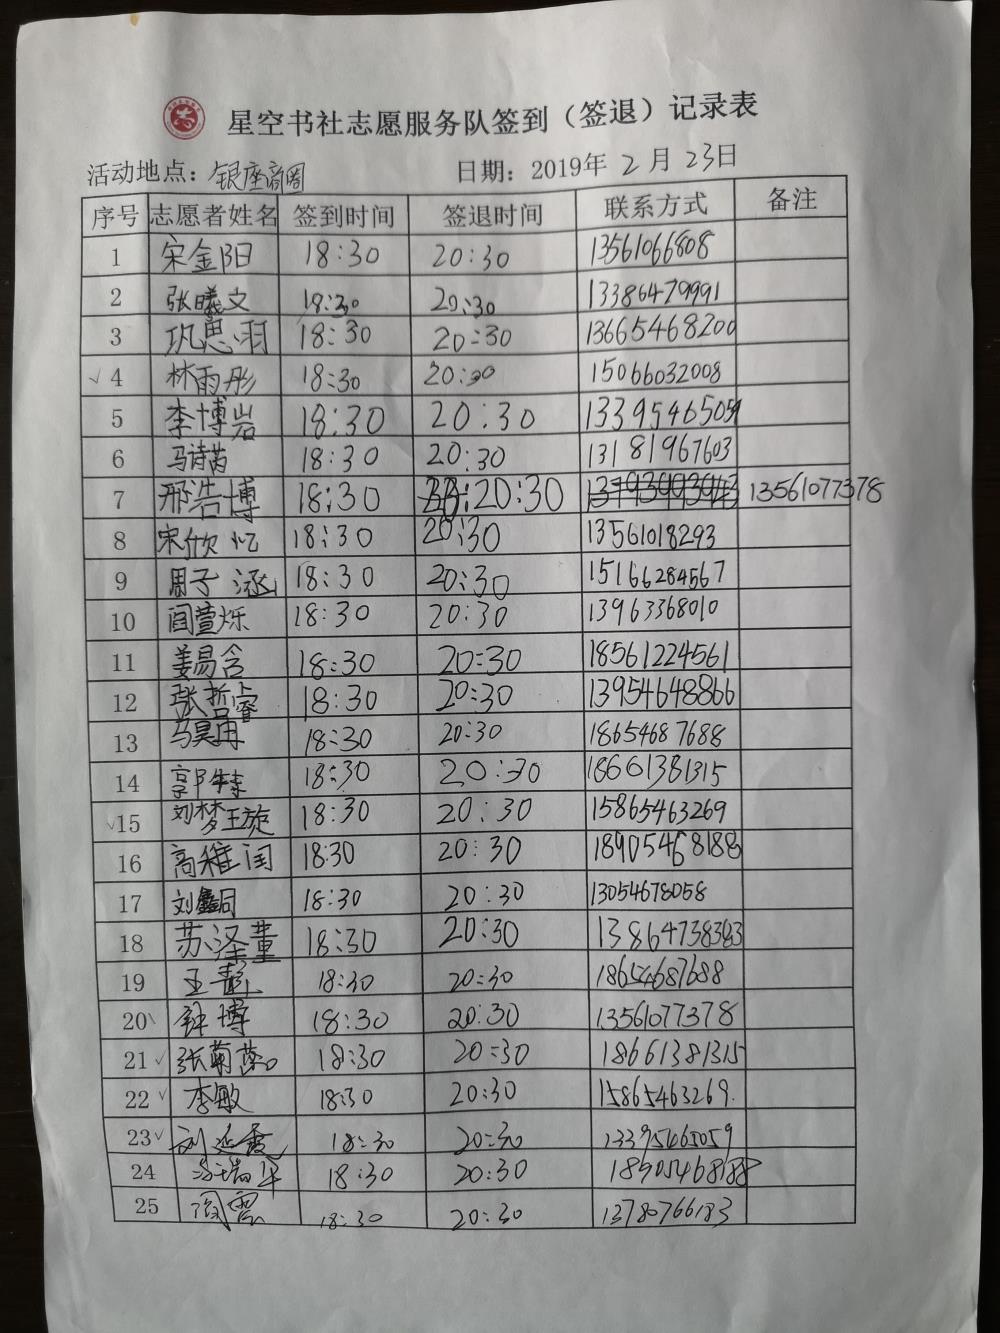 星空书社志愿服务队签到（签退）记录表
活动地点：银座商圈 日期：2019年 2 月 23日
序号 志愿者姓名 签到时间 签退时间 联系方式 备注
1 宋金阳 18:30 20:30 13561066808
2 张曦文 18:30 20:30 13386479991
3 巩思雨 18:30 20:30 13665468200
✓4 林雨彤 18:30 20:30 15066032008
5 李博岩 18:30 20:30 13395465059
6 马诗芮 18:30 20:30 13181967603
7 邢浩博 18:30 20:30 13561077378
8 宋欣忆 18:30 20:30 13561018293
9 周子涵 18:30 20:30 15166284567
10 闫萱烁 18:30 20:30 13963368010
11 姜易含 18:30 20:30 18561224561
12 张哲睿 18:30 20:30 13954648866
13 马昊用 18:30 20:30 18654687688
14 郭特 18:30 20:30 18661381315
✓15 刘梦璇 18:30 20:30 15865463269
16 高稚闰 18:30 20:30 18905468188
17 刘鑫同 18:30 20:30 13054678058
18 苏泽董 18:30 20:30 13864738383
19 王 18:30 20:30 18654687688
20 钟博 18:30 20:30 13561077378
21✓ 张菊蕊 18:30 20:30 18661381315
22✓ 李敏 18:30 20:30 15865463269.
23✓ 刘延霞 18:30 20:30 13395465059
24 瑞华 18:30 20:30 18905468188
25 闫震 18:30 20:30 13780766183